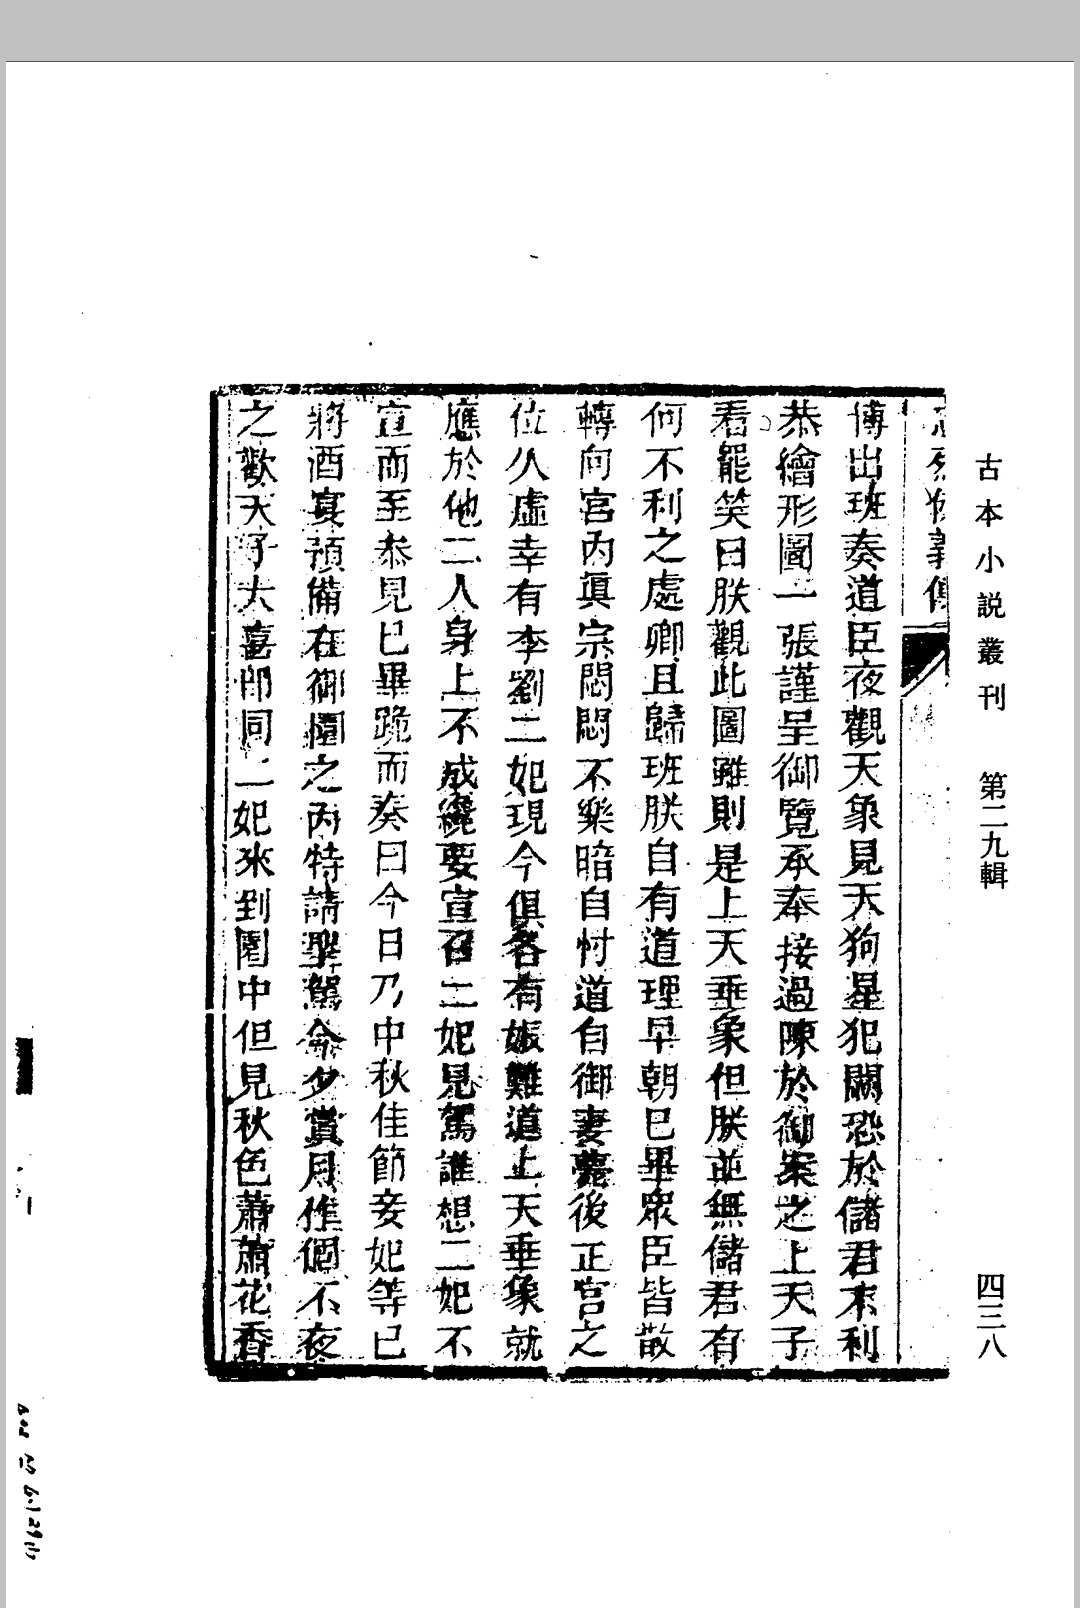 古本小說叢刊 第二九輯
四三八
博出班奏道臣夜觀天象見天狗星犯闕恐於儲君未利
恭繪形圖一張謹呈御覽承奉接過陳於御案之上天子
看罷笑曰朕觀此圖雖則是上天垂象但朕並無儲君有
何不利之處卿且歸班朕自有道理早朝已畢衆臣皆散
轉向宮內眞宗悶悶不樂暗自忖道自御妻薨後正宮之
位久虛幸有李劉二妃現今俱各有娠難道上天垂象就
應於他二人身上不成纔要宣召二妃見駕誰想二妃不
宣而至恭見已畢跪而奏曰今日乃中秋佳節妾妃等已
將酒宴預備在御園之內特請聖駕今夕賞月作個不夜
之歡天子大喜卽同二妃來到園中但見秋色蕭蕭花香